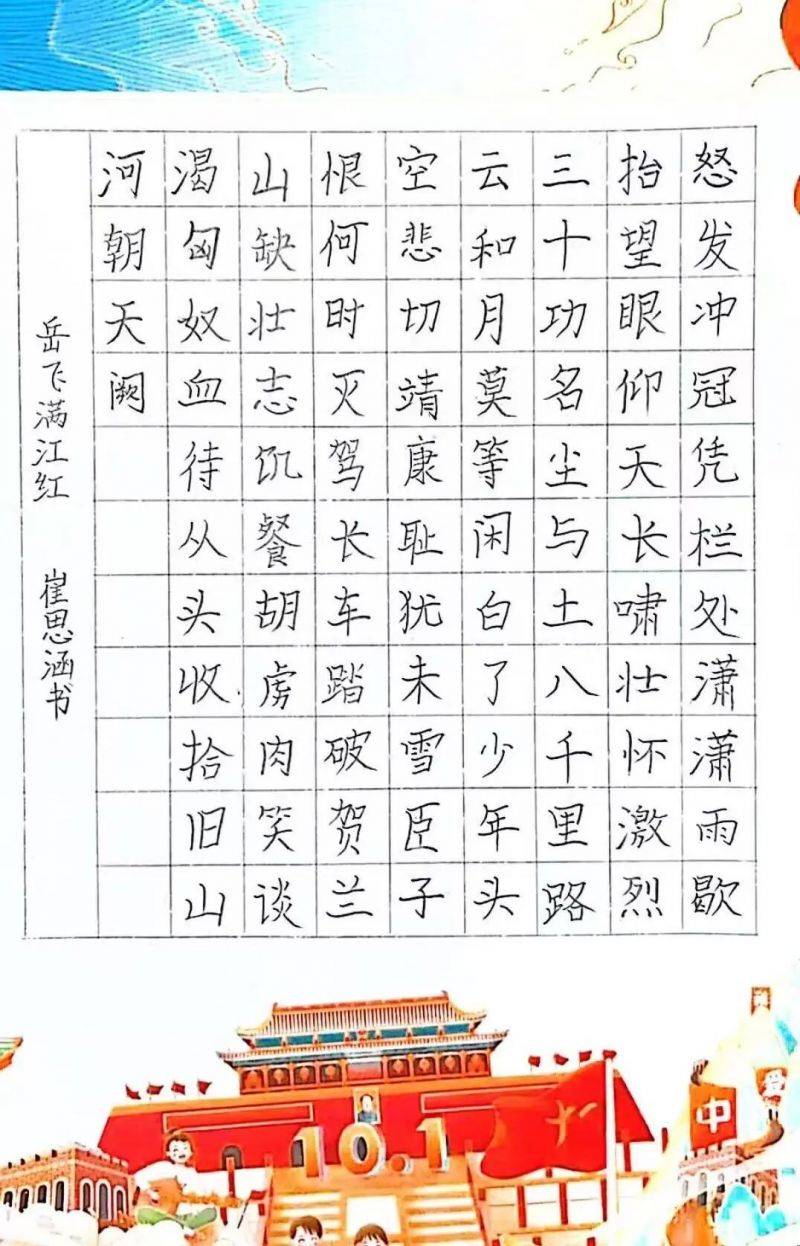 怒发冲冠凭栏处潇潇雨歇
抬望眼仰天长啸壮怀激烈
三十功名尘与土八千里路
云和月莫等闲白了少年头
空悲切靖康耻犹未雪臣子
恨何时灭驾长车踏破贺兰
山缺壮志饥餐胡虏肉笑谈
渴匈奴血待从头收拾旧山
河朝天阙
岳飞满江红 崔思涵书
10.1
中
爱